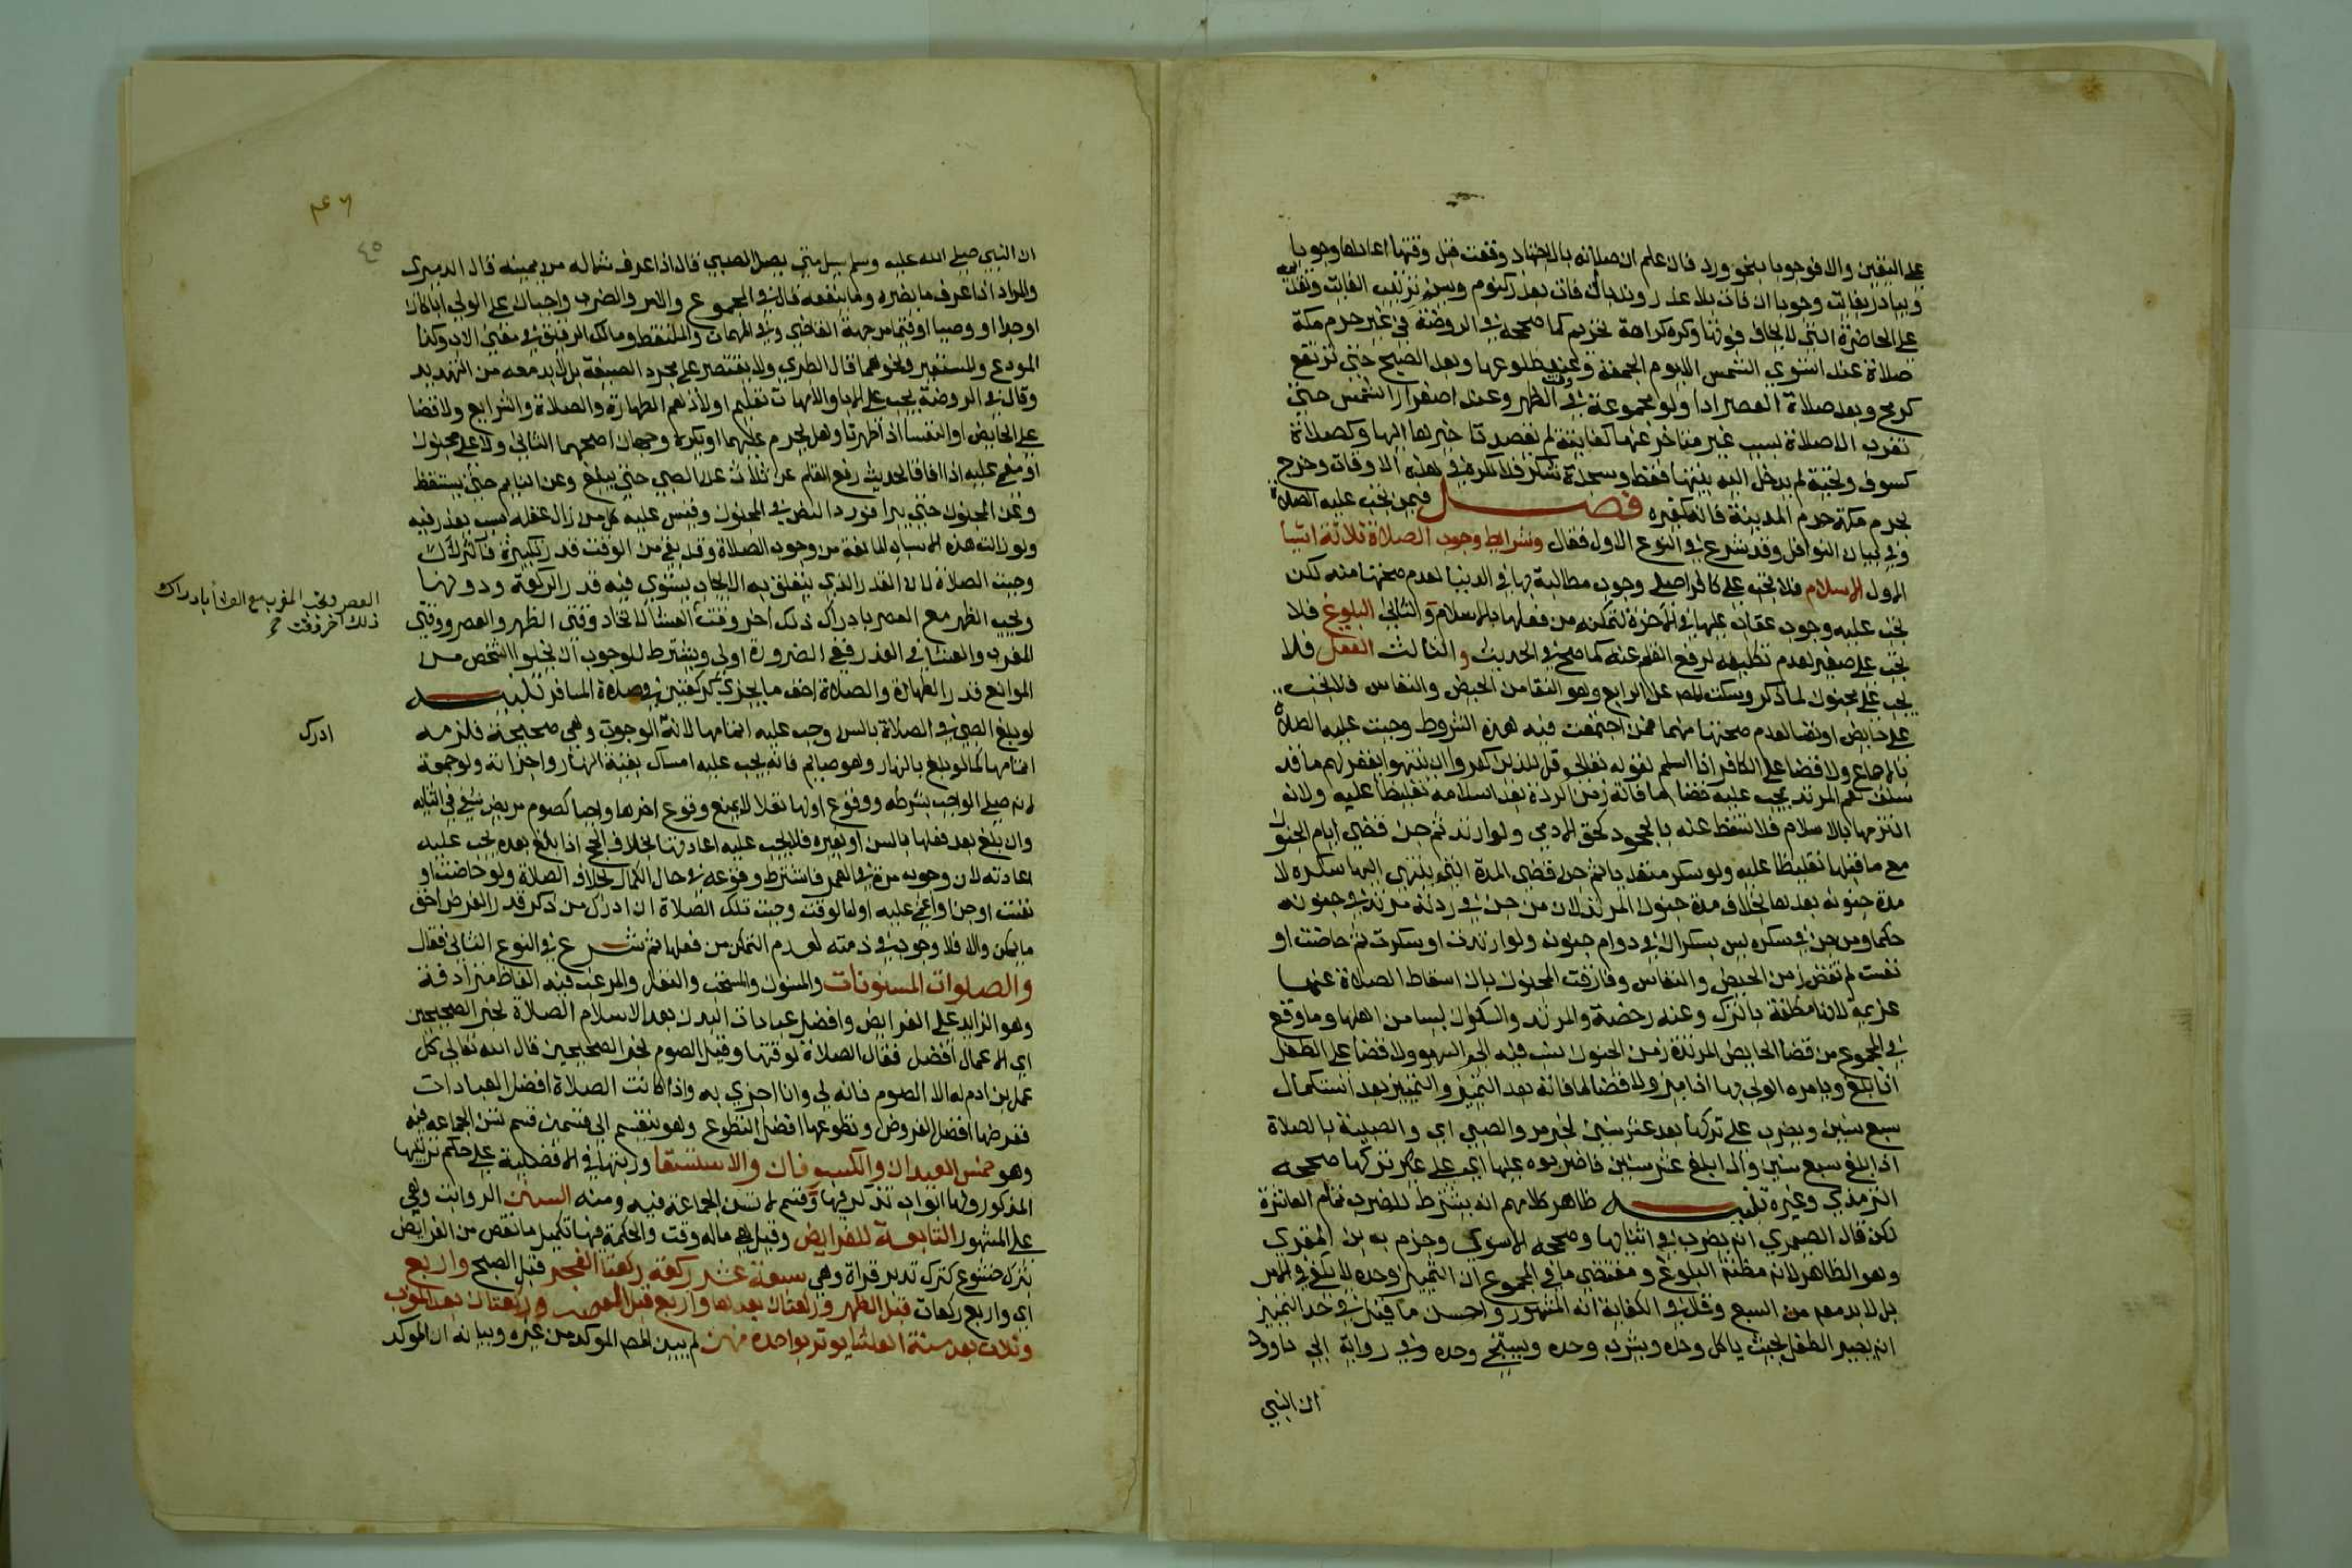 على اليقين والا فوجوبا بنحو ورد فان علم ان صلاته بالاجتهاد وقعت قبل وقتها اعادها وجوبا
ويبادر بفايت وجوبا ان فات بلا عذر وندبا ان فات بعذر كنوم وسن ترتيب الفايت وتقديمه
على الحاضرة التي لا يخاف فوتها وكره كراهة تحريم كما صححه في الروضة في غير حرم مكة
صلاة عند استوي الشمس الا يوم الجمعة وعند طلوعها وبعد الصبح حتي ترتفع
كرمح وبعد صلاة العصر ادا ولو مجموعة في وقت الظهر وعند اصفرار الشمس حتي
تغرب الا صلاة لسبب غير متاخر عنها كفايتة لم يقصد تاخيرها اليها وكصلاة
كسوف وتحية لم يدخل اليه بنيتها فقط وسجدة شكر فلا تكره في هذه الاوقات وخرج
بحرم مكة حرم المدينة فانه كغيره فصل فيمن تجب عليه الصلاة
وفي بيان النوافل وقد شرع في النوع الاول فقال وشرايط وجوب الصلاة ثلاثة اشيا
الاول الاسلام فلا تجب على كافر اصلي وجوب مطالبة بها في الدنيا لعدم صحتها منه لكن
تجب عليه وجوب عقاب عليها في الاخرة لتمكنه من فعلها بالاسلام والثاني البلوغ فلا
تجب على صغير لعدم تكليفه لرفع القلم عنه كما صح في الحديث والثالث العقل فلا
تجب على مجنون لما ذكر وسكت المص عن الرابع وهو النقا من الحيض والنفاس فلا تجب
على حايض او نفسا لعدم صحتها منهما فمن اجتمعت فيه هذه الشروط وجبت عليه الصلاة
بالاجماع ولا قضا على الكافر اذا اسلم لقوله تعالى قل للذين كفروا ان ينتهوا يغفر لهم ما قد
سلف نعم المرتد يجب عليه قضا ما فاته زمن الردة بعد اسلامه تغليظا عليه ولانه
التزمها بالاسلام فلا تسقط عنه بالجحود كحق الادمي ولو ارتد ثم جن قضي ايام الجنون
مع ما قبلها تغليظا عليه ولو سكر متعديا ثم جن قضى المدة التي ينتهي اليها سكره لا
مدة جنونه بعدها بخلاف مدة جنون المرتد لان من جن في ردته مرتد في جنونه
حكما ومن جن في سكره ليس بسكران في دوام جنونه ولو ارتدت او سكرت ثم حاضت او
نفست لم تقض زمن الحيض والنفاس وفارقت المجنون بان اسقاط الصلاة عنها
عزيمة لانها مكلفة بالترك وعنه رخصة والمرتد والسكران ليسا من اهلها وما وقع
في المجموع من قضا الحايض المرتدة زمن الجنون نسب فيه الي السهو ولا قضا على الطفل
اذا بلغ ويامره الولي بها اذا ميز ولا قضا لما فاته بعد التميز والتمييز بعد استكمال
سبع سنين ويضرب على تركها بعد عشر سنين لخبر مروا الصبي اي والصبية بالصلاة
اذا بلغ سبع سنين واذا بلغ عشر سنين فاضربوه عليها اي على تركها صححه
الترمذي وغيره تنبيه ظاهر كلامهم انه يشترط للضرب تمام العاشرة
لكن قال الصيمري انه يضرب في اثنايها وصححه الاسنوي وجزم به ابن المقري
وهو الظاهر لانه مظنة البلوغ ومقتضي ما في المجموع ان التمييز وحده لا يكفي في الامر
بل لا بد معه من السبع وقال في الكفاية انه المشهور واحسن ما قيل في حد التمييز
ان يصير الطفل بحيث ياكل وحده ويشرب وحده ويستنجي وحده وفي رواية ابي داود
ان النبي
٤٦
٤٥
ان النبي صلى الله عليه وسلم سيل متي يصلي الصبي قال اذا عرف شماله من يمينه قال الدميري
والمراد اذا عرف ما يضره وما ينفعه قال في المجموع والامر والضرب واجبان على الولي ابا كان
او جدا او وصيا او قيما من جهة القاضي وفي المهمات والملتقط ومالك الرقيق في معني الاب وكذا
المودع والمستعير ونحوهما قال الطبري ولا يقتصر على مجرد الصيغة بل لا بد معه من التهديد
وقال في الروضة يجب على الابا والامهات تعليم اولادهم الطهارة والصلاة والشرايع ولا قضا
على الحايض او النفسا اذا طهرتا وهل يحرم عليهما او يكره وجهان اصحهما الثاني ولا على مجنون
او مغمى عليه اذا افاقا لحديث رفع القلم عن ثلاث عن الصبي حتي يبلغ وعن النايم حتي يستيقظ
وعن المجنون حتي يبرا فورد النص في المجنون وقيس عليه كل من زال عقله بسبب يعذر فيه
ولو زالت هذه الاسباب المانعة من وجوب الصلاة وقد بقي من الوقت قدر تكبيرة فاكثر
وجبت الصلاة لان القدر الذي يتعلق به الايجاب يستوي فيه قدر الركعة ودونها
وتجب الظهر مع العصر بادراك ذلك اخر وقت العشا لاتحاد وقتي الظهر والعصر ووقتي
المغرب والعشا في العذر ففي الضرورة اولى ويشترط للوجوب ان يخلو الشخص من
الموانع قدر الطهارة والصلاة اخف ما يجزي كركعتين في صلاة المسافر تنبيه
لو بلغ الصبي في الصلاة بالسن وجب عليه اتمامها لانه الوجوب وهي صحيحة فلزمه
اتمامها كما لو بلغ بالنهار وهو صايم فانه يجب عليه امساك بقية النهار واجزاته ولو جمعة
لانه صلى الواجب بشرطه ووقوع اولها نفلا لا يمنع وقوع اخرها واجبا كصوم مريض شفي في اثنايه
وان بلغ بعد فعلها بالسن او بغيره فلا يجب عليه اعادتها بخلاف الحج اذا بلغ بعده يجب عليه
اعادته لان وجوبه مرة في العمر فاشترط وقوعه في حال الكمال بخلاف الصلاة ولو حاضت او
نفست او جن او اغمي عليه اول الوقت وجبت تلك الصلاة ان ادرك من ذكر قدر الفرض اخف
ما يمكن والا فلا وجوب في ذمته لعدم التمكن من فعلها ثم شرع في النوع الثاني فقال
والصلوات المسنونات والمسنون والمستحب والنفل والمرغب فيه الفاظ مترادفة
وهو الزايد على الفرايض وافضل عبادات البدن بعد الاسلام الصلاة لخبر الصحيحين
اي الاعمال افضل فقال الصلاة لوقتها وقيل الصوم لخبر الصحيحين قال الله تعالى كل
عمل ابن ادم له الا الصوم فانه لي وانا اجزي به واذا كانت الصلاة افضل العبادات
ففرضها افضل الفروض وتطوعها افضل التطوع وهو ينقسم الى قسمين قسم تسن الجماعة فيه
وهو خمس العيدان والكسوفان والاستسقا ورتبتها في الافضلية على حكم ترتيبها
المذكور ولها ابواب تذكر فيها وقسم لا تسن الجماعة فيه ومنه السنن الرواتب وهي
على المشهور التابعة للفرايض وقيل هي ما له وقت والحكمة فيها تكميل ما نقص من الفرايض
بترك خشوع كترك تدبر قراة وهي سبعة عشر ركعة ركعتا الفجر قبل الصبح واربع
اي واربع ركعات قبل الظهر وركعتان بعدها واربع قبل العصر وركعتان بعد المغرب
وثلاث بعد سنة العشا يوتر بواحدة منهن لم يبين المص الموكد من غيره وبيانه ان الموكد
العصر وتجب المغرب مع العشا بادراك
ذلك اخر وقت
ادرك